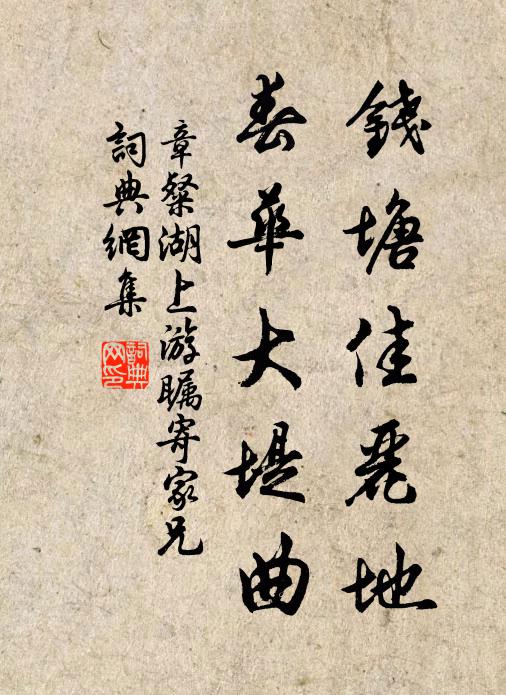 錢塘佳麗地
春華大堤曲
章粲湖上游矚寄家兄
詞典網集
詞典
网印